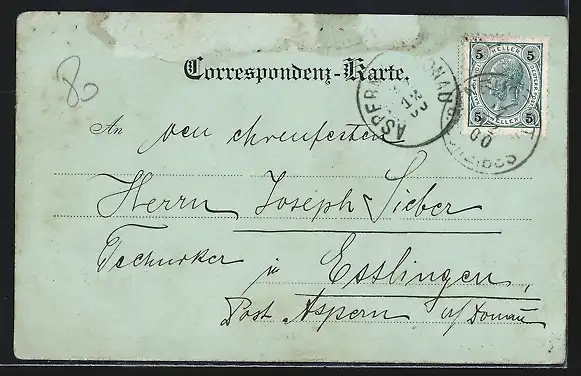 80
Correspondenz-Karte.
5 HELLER 5
5 HELLER 5
ASPERN DONAU
12
00
00
An den ehrenfesten
Herrn Joseph Sieber
Techniker in Esslingen,
Post Aspern a/ Donau